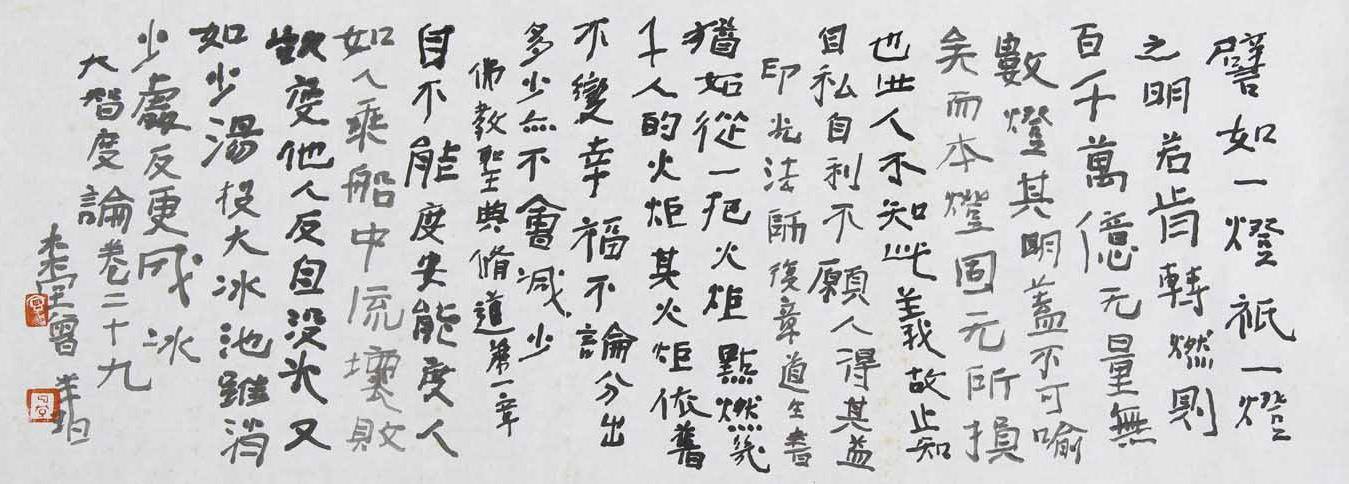 譬如一燈祇一燈
之明若肯轉燃則
百千萬億无量無
數燈其明蓋不可喻
矣而本燈固无所損
也世人不知此義故止知
自私自利不願人得其益
印光法師復章道生書
猶如從一把火炬點燃幾
千人的火炬其火炬依舊
不變幸福不論分出
多少亦不會減少
佛教聖典脩道第一章
自不能度安能度人
如人乘船中流壞敗
欲度他人反自没水又
如少湯投大冰池雖消
少處反更成冰
大智度論卷二十九
堂曾